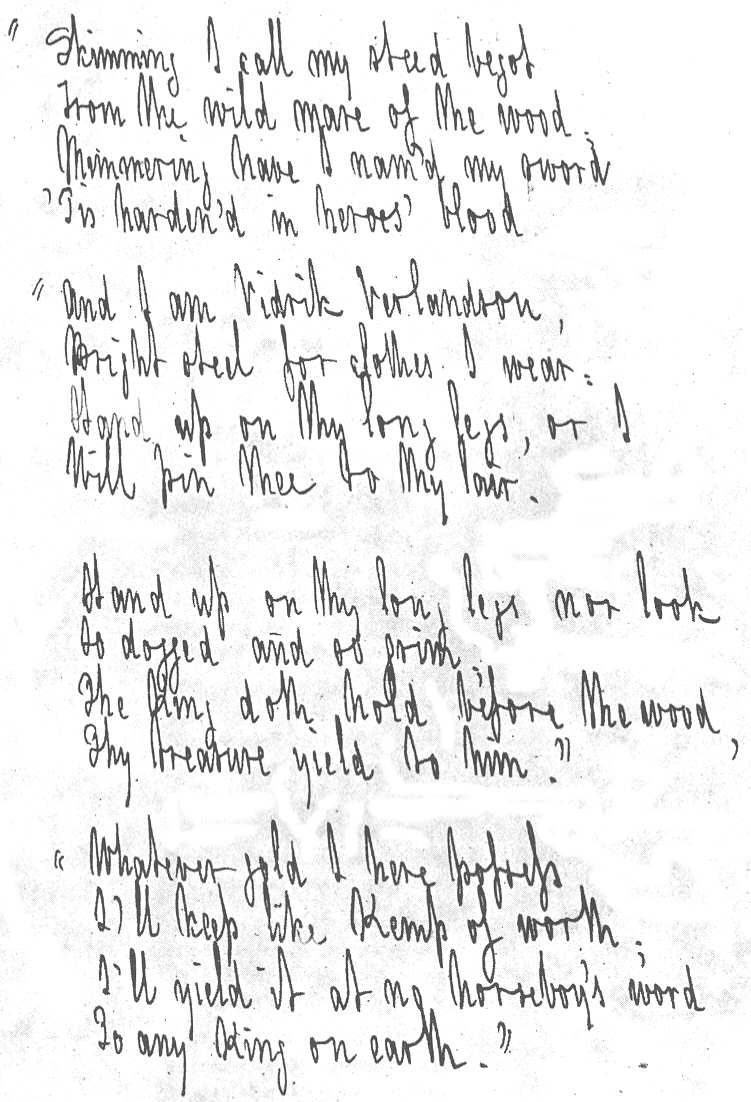 " Skimming I call my steed begot
From the wild mare of the wood;
Mimmering have I nam'd my sword
'Tis harden'd in heroes' blood
" And I am Vidrik Verlandson,
Bright steel for clothes I wear:
Stand up on thy long legs, or I
Will pin thee to thy lair.
Stand up on thy long legs nor look
So dogged and so grim
The King doth hold before the wood,
Thy treasure yield to him."
" Whatever gold I here possess
I'll keep like Kemp of worth;
I'll yield it at no horseboy's word
To any King on earth."